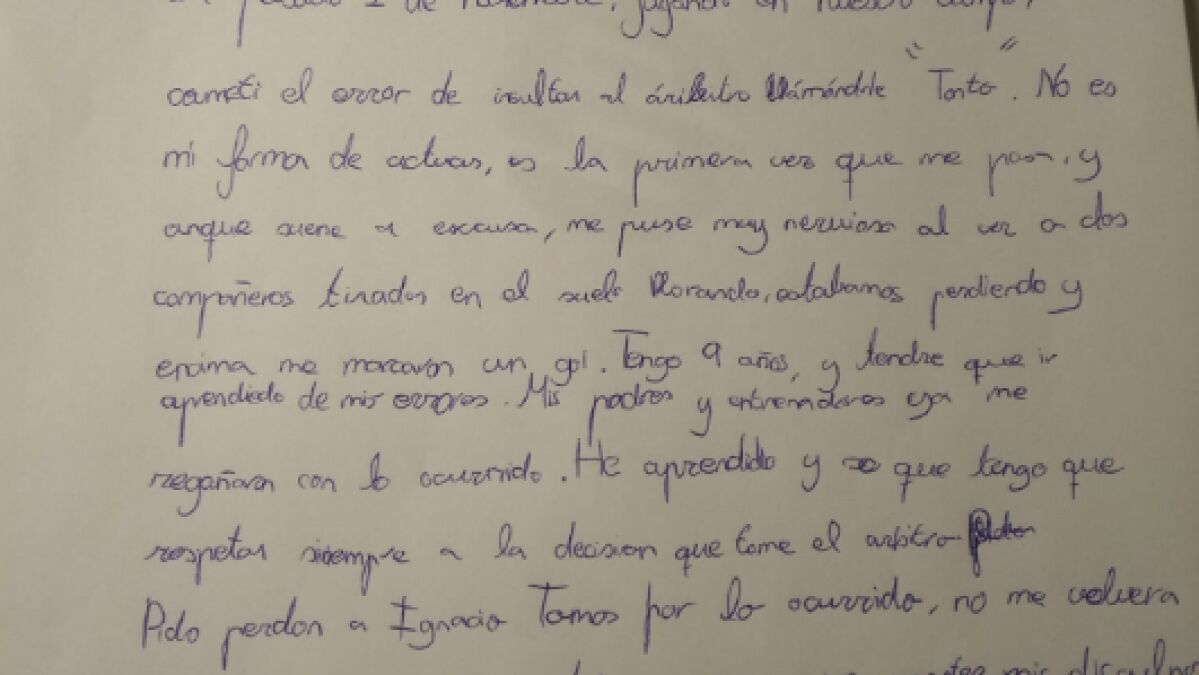 pasado 2 de noviembre, jugando en nuestro campo,
cometi el error de insultar al áributro llámándole "Tonto". No es
mi forma de actuar, es la primera vez que me pasa, y
anque suene a excusa, me puse muy nerviosa al ver a dos
compañeros tirados en el suelo llorando, estabamos perdiendo y
encima me marcaron un gol. Tengo 9 años, y tendre que ir
aprendiedo de mis errores. Mis padres y entrenadores ya me
regañaron con lo ocurrido. He aprendido y se que tengo que
respetar siempre a la decision que tome el arbitro
Pido perdon a Ignacio Tomos por lo ocurrido, no me volvera
mis disculpas